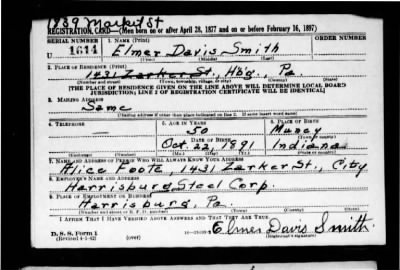 1939 Market St
REGISTRATION CARD—(Men born on or after April 28, 1877 and on or before February 16, 1897)
SERIAL NUMBER
1. NAME (Print)
U 1614
Elmer Davis Smith
(First) (Middle) (Last)
2. PLACE OF RESIDENCE (Print)
1431 Zarker St., Hbg., Pa.
(Number and street) (Town, township, village, or city) (County) (State)
[THE PLACE OF RESIDENCE GIVEN ON THE LINE ABOVE WILL DETERMINE LOCAL BOARD
JURISDICTION; LINE 2 OF REGISTRATION CERTIFICATE WILL BE IDENTICAL]
3. MAILING ADDRESS
Same
[Mailing address if other than place indicated on line 2. If same insert word same]
4. TELEPHONE
5. AGE IN YEARS
6. PLACE OF BIRTH
50
Muncy
DATE OF BIRTH
(Town or county)
Oct. 22, 1891
Indiana
(Exchange) (Number)
(Mo.) (Day) (Yr.)
(State or country)
7. NAME AND ADDRESS OF PERSON WHO WILL ALWAYS KNOW YOUR ADDRESS
Alice Foote, 1431 Zarker St., City
8. EMPLOYER'S NAME AND ADDRESS
Harrisburg Steel Corp.
9. PLACE OF EMPLOYMENT OR BUSINESS
Harrisburg, Pa.
(Number and street or R. F. D. number) (Town) (County) (State)
I AFFIRM THAT I HAVE VERIFIED ABOVE ANSWERS AND THAT THEY ARE TRUE.
D. S. S. Form 1
(Revised 4-1-42) (over)
Elmer Davis Smith
(Registrant's signature)